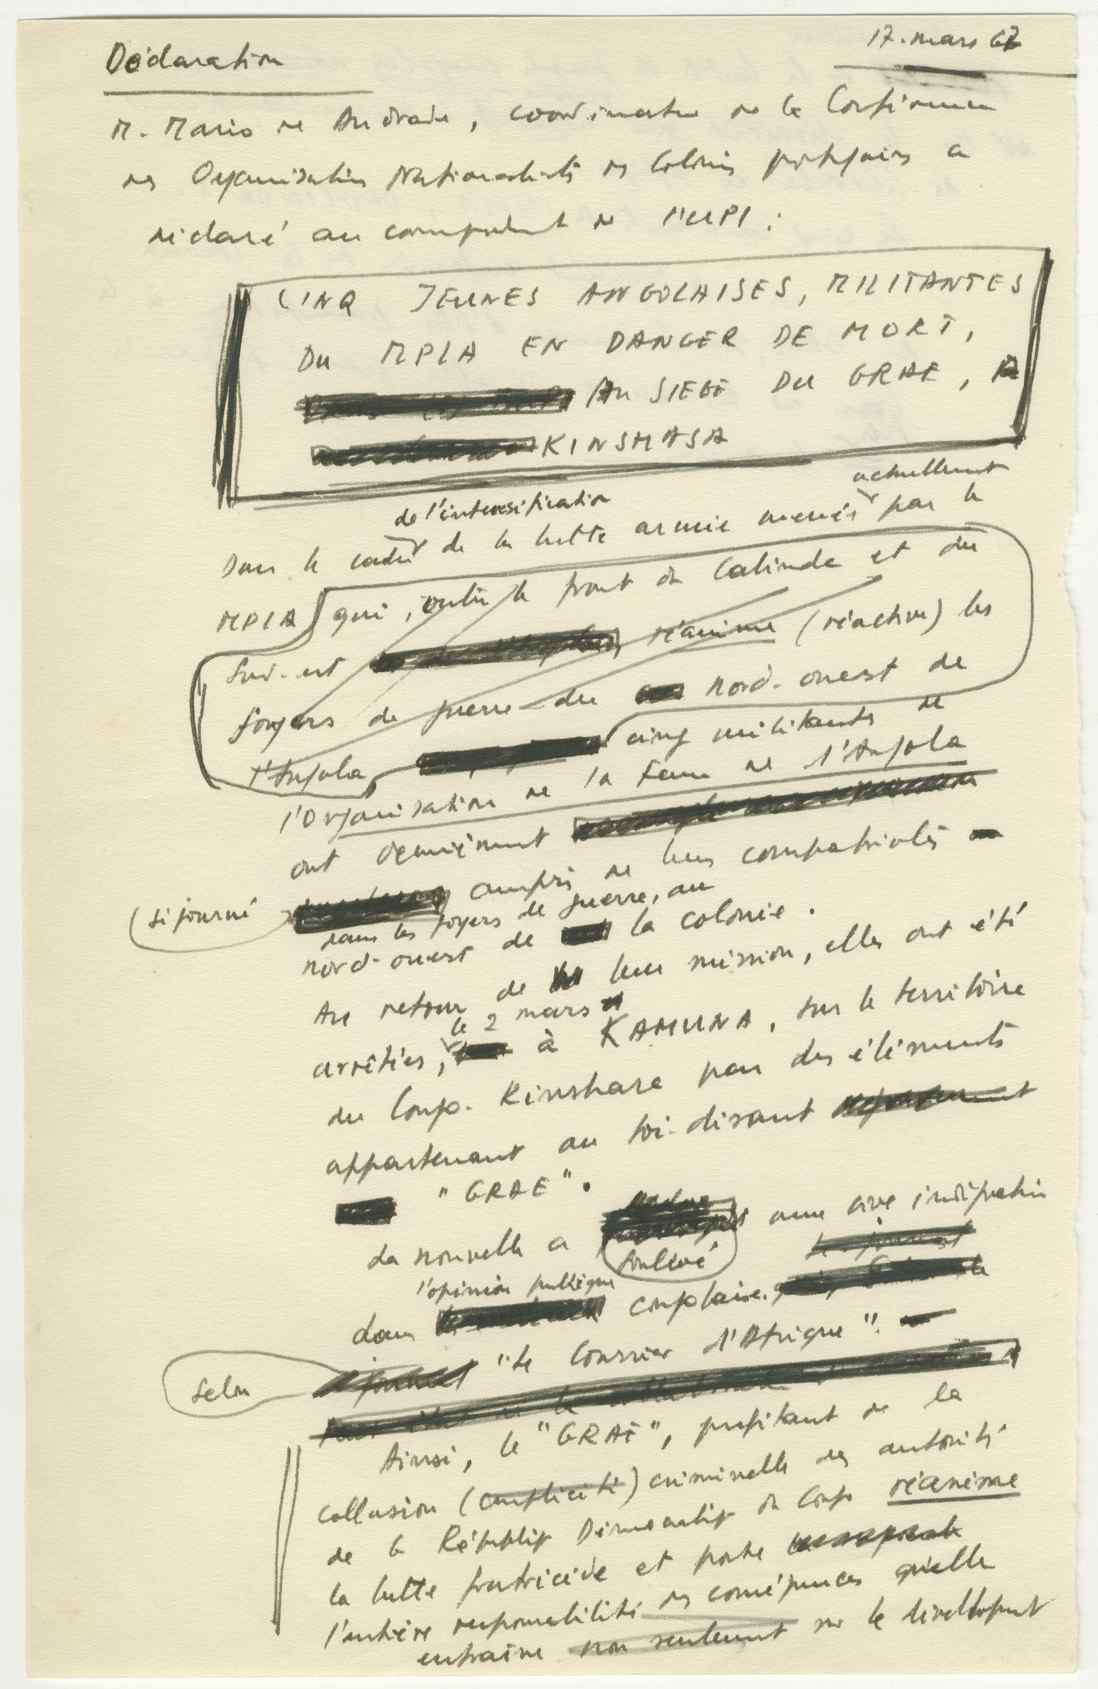 Déclaration
17. mars 67
M. Mario de Andrade, coordinateur de la Conférence
des Organisations Nationalistes des Colonies portugaises a
déclaré au correspondant de l'UPI :
CINQ JEUNES ANGOLAISES, MILITANTES
DU MPLA EN DANGER DE MORT,
AU SIEGE DU GRAE, A
KINSHASA
de l'intensification
actuellement
Dans le cadre de la lutte armée menée par le
MPLA qui, outre le front de Cabinda et du
Sud-est réanime (réactive) les
foyers de guerre du nord-ouest de
l'Angola, cinq militantes de
l'Organisation de la Femme de l'Angola
ont dernièrement
(séjourné auprès de leurs compatriotes
dans les foyers de guerre, au
nord-ouest de la colonie.
Au retour de leur mission, elles ont été
le 2 mars
arrêtées, à KAMUNA, sur le territoire
du Congo-Kinshasa par des éléments
appartenant au soi-disant
"GRAE".
La nouvelle a soulevé une vive indignation
l'opinion publique
dans congolaise.
Selon "Le Courrier d'Afrique".
Ainsi, le "GRAE", profitant de la
collusion (complicité) criminelle des autorités
de la République Démocratique du Congo réanime
la lutte fratricide et porte
l'entière responsabilité des conséquences qu'elle
entraîne non seulement sur le développement